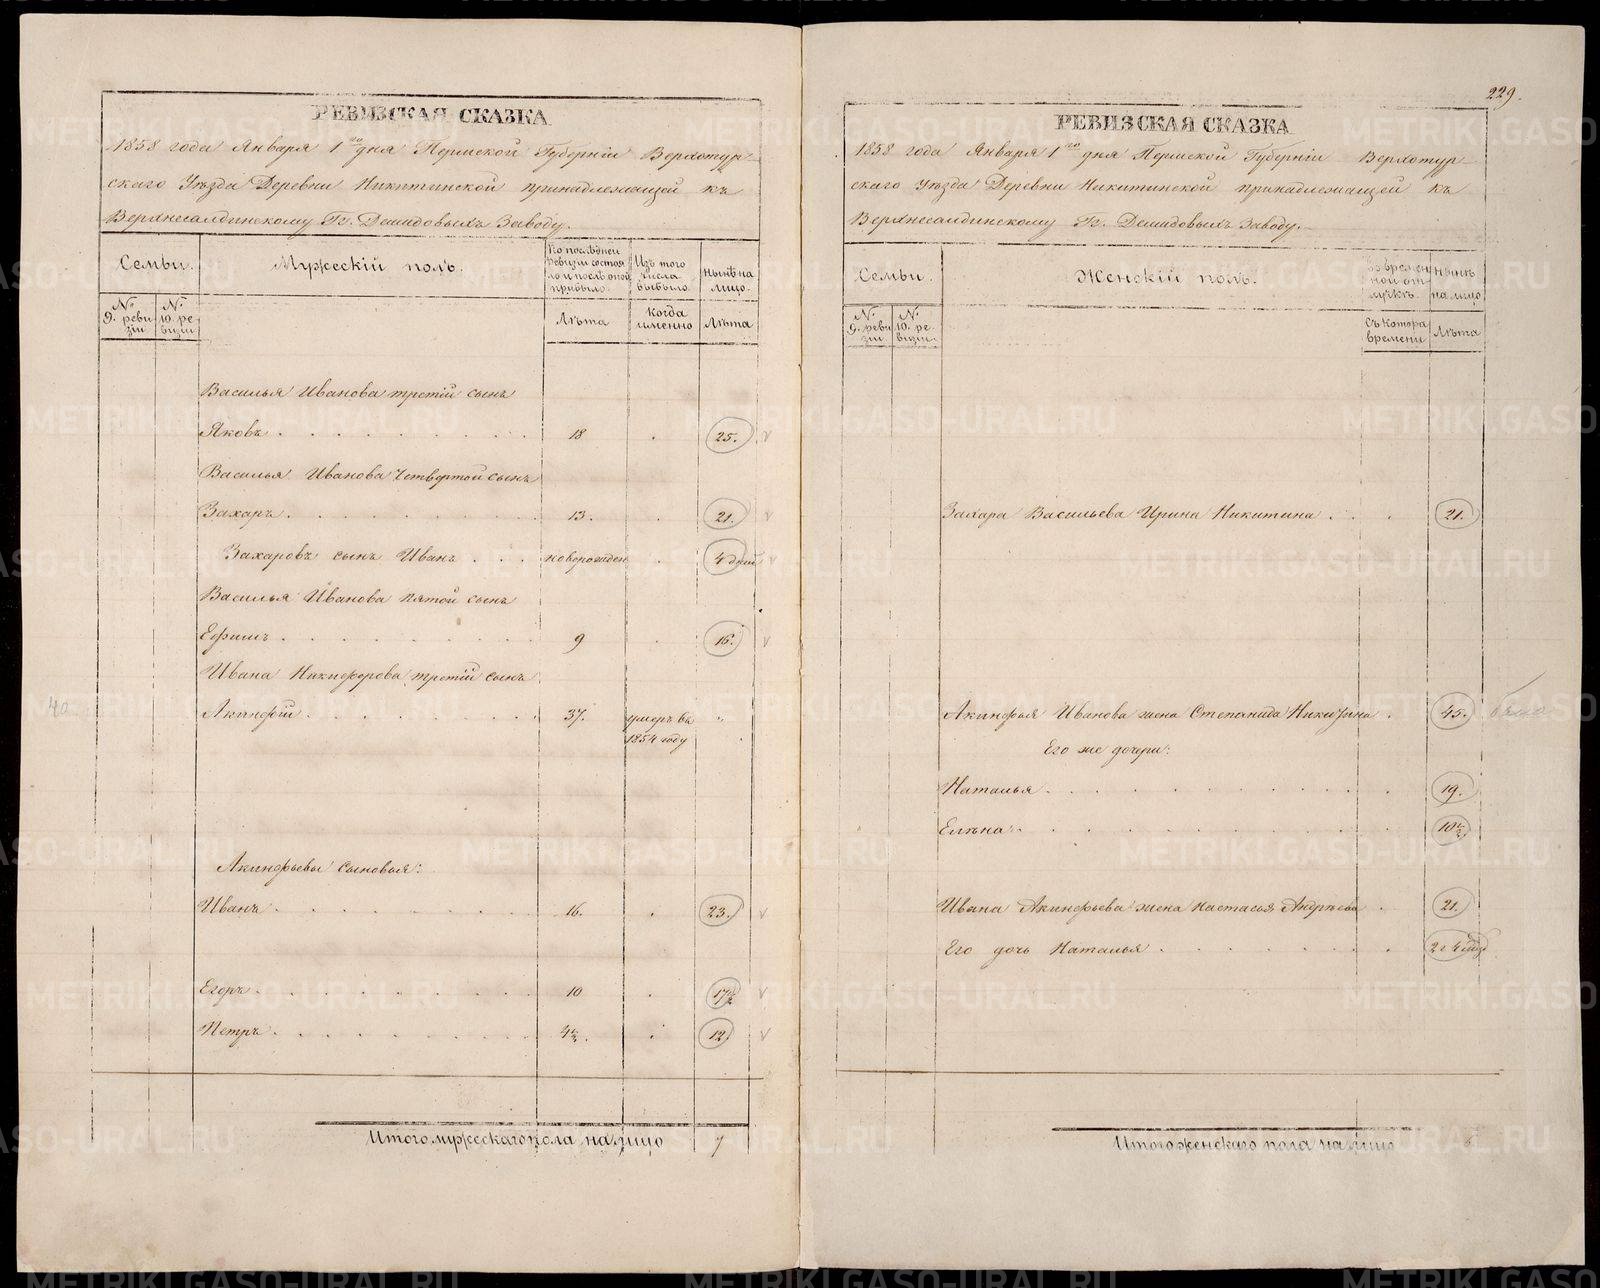 РЕВИЗСКАЯ СКАЗКА
1858 года Января 1го дня Пермской Губернiи Верхотур-
скаго Уѣзда Деревни Никитинской принадлежащей къ
Верхнесалдинскому Гг. Демидовыхъ Заводу.
Семьи.
Мужескiй полъ.
По последней ревизiи состояло и после оной прибыло.
Изъ того числа выбыло.
Нынѣ на лицо.
№ 9. ревизiи
№ 10. ревизiи
Лѣта
Когда именно
Лѣта
Василья Иванова третiй сынъ
Яковъ . 18 . 25.
Василья Иванова четвертой сынъ
Захаръ . 13. . 21.
Захаровъ сынъ Иванъ . . . новорожден . 4 дней
Василья Иванова пятой сынъ
Ефимъ . 9 . 16.
Ивана Никифорова третiй сынъ
Акинфiй . 37. умеръ въ 1854 году "
40
Акинфьевы сыновья:
Иванъ . 16. . 23.
Егоръ . 10 . 17½
Петръ . 4½. . 12.
Итого мужескаго пола на лицо 7
229.
РЕВИЗСКАЯ СКАЗКА
1858 года Января 1го дня Пермской Губернiи Верхотур-
скаго Уѣзда Деревни Никитинской принадлежащей къ
Верхнесалдинскому Гг. Демидовыхъ Заводу.
Семьи.
Женскiй полъ.
Во временной отлучкѣ.
Нынѣ на лицо
№ 9. ревизiи
№ 10. ревизiи.
Съ котора времени
Лѣта
Захара Васильева Ирина Никитина . . . 21.
Акинфья Иванова жена Степанида Никитина . 45.
Его же дочери:
Наталья . 19.
Елѣна . 10½
Ивана Акинфьева жена Настасья Андрѣева . 21.
Его дочь Наталья . 2 г 4 мѣс
Итого женскаго пола на лицо 6
METRIKI.GASO-URAL.RU